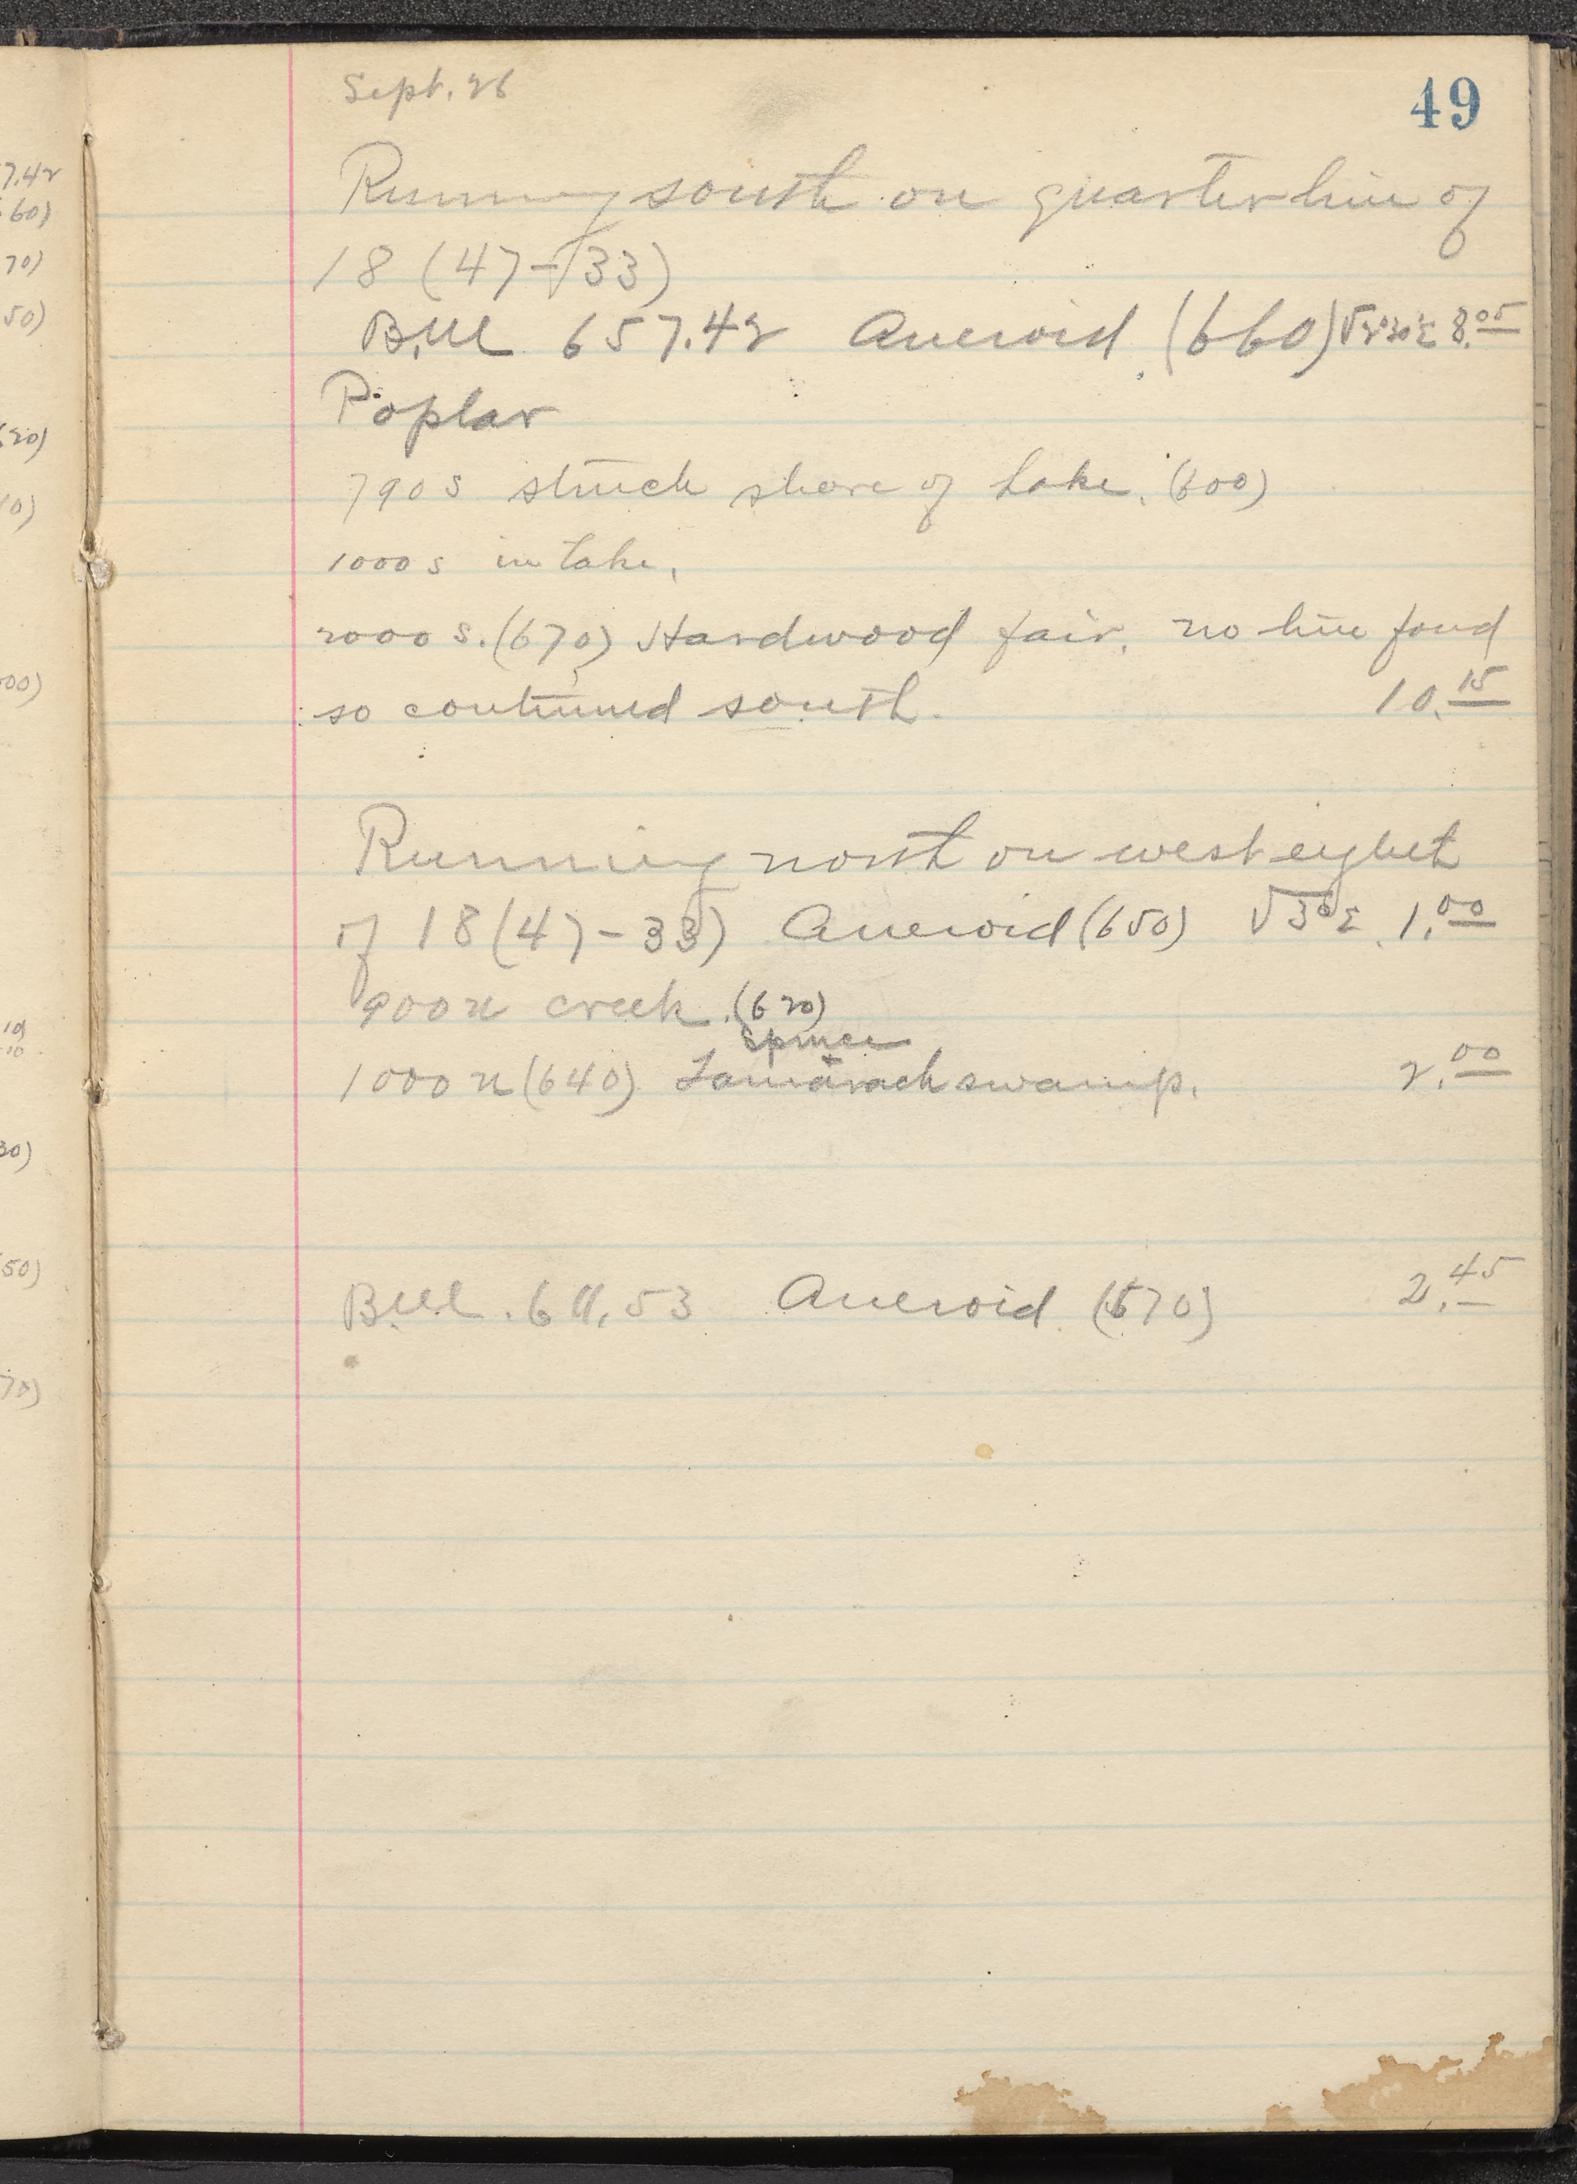 49
Sept. 26
Running south on quarter line of
18 (47-33)
B.M. 657.42 Aneroid (660) √2°30'E 8.05
Poplar
790 S struck shore of Lake. (600)
1000 S in Lake.
2000 S. (670) Hardwood fair, no line found
so continued south. 10.15
Running north on west eight
of 18 (47-33) Aneroid (650) √3°E 1.00
900 N creek. (620)
Spruce
1000 N (640) Tamarack swamp. 2.00
B.M. 611.53 Aneroid (570) 2.45
7.42
60)
70)
50)
20)
0)
00)
10
10
30)
50)
70)